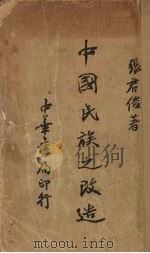 張君俊著
中國民族之改造
中華書局印行
www.mtoou.info mtoou.com